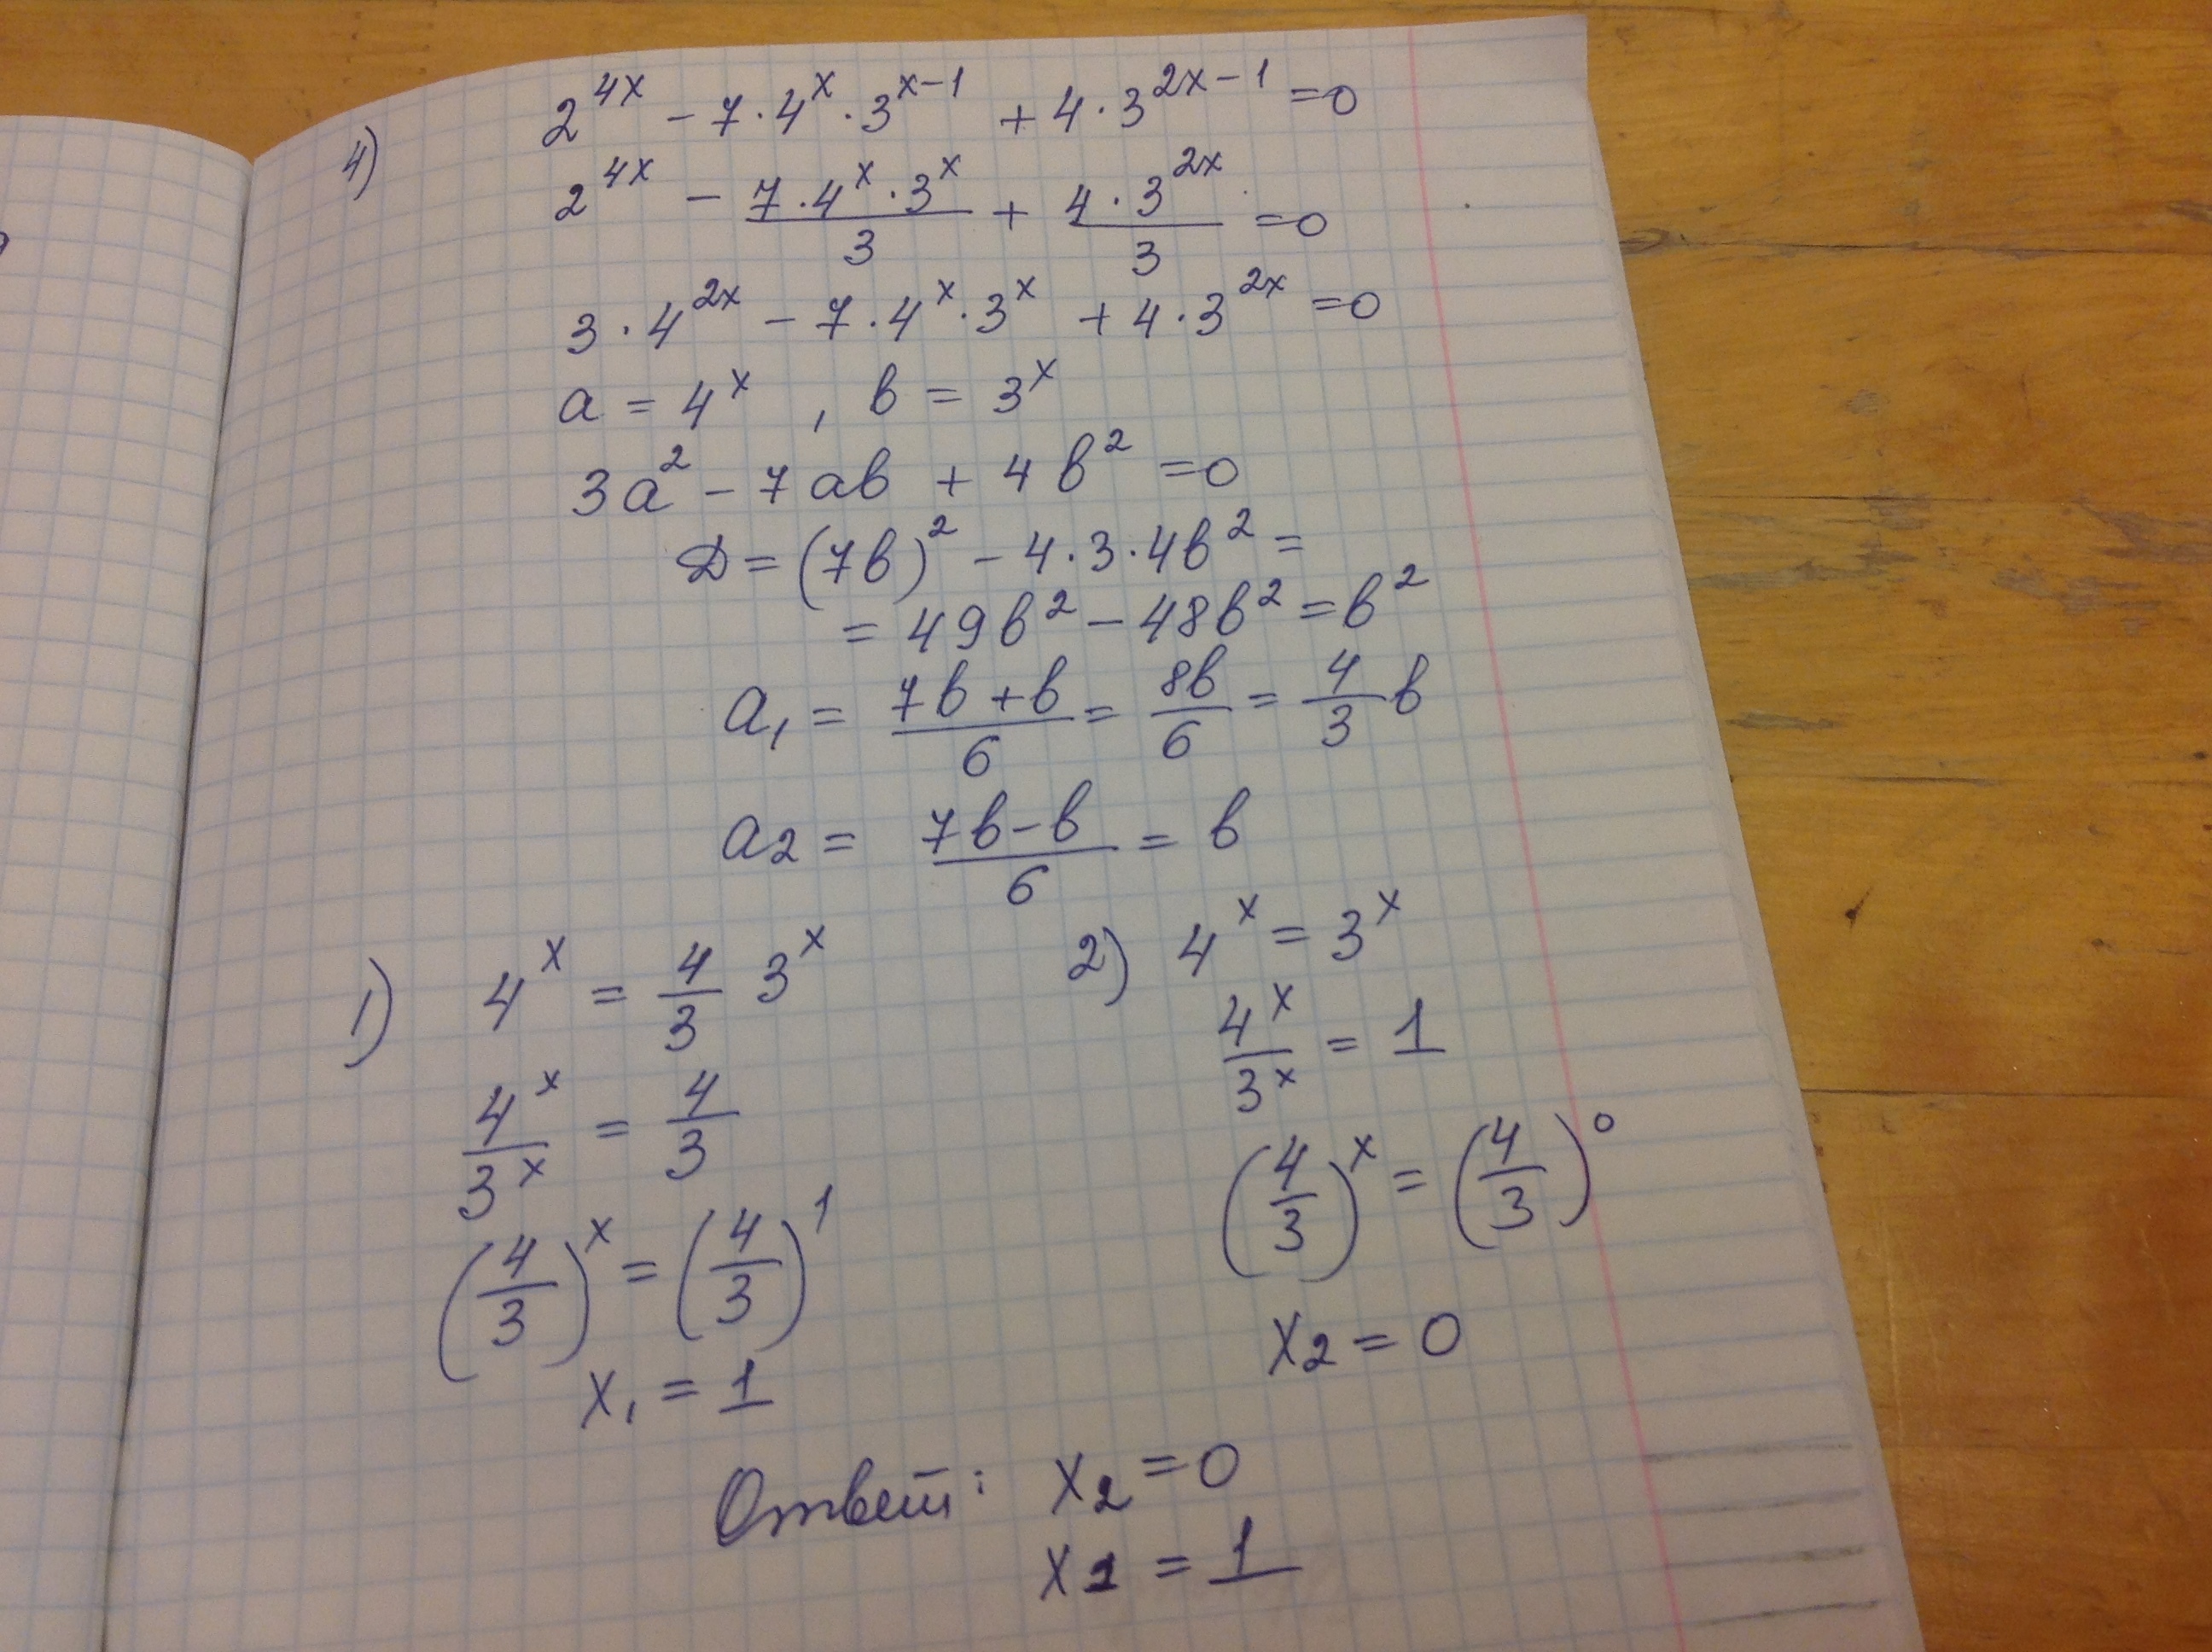 4) 2^{4x} - 7·4^x·3^{x-1} + 4·3^{2x-1} = 0
2^{4x} - \frac{7·4^x·3^x}{3} + \frac{4·3^{2x}}{3} = 0
3·4^{2x} - 7·4^x·3^x + 4·3^{2x} = 0
a = 4^x, b = 3^x
3a^2 - 7ab + 4b^2 = 0
Д = (7b)^2 - 4·3·4b^2 =
= 49b^2 - 48b^2 = b^2
a_1 = \frac{7b+b}{6} = \frac{8b}{6} = \frac{4}{3}b
a_2 = \frac{7b-b}{6} = b
1) 4^x = \frac{4}{3} 3^x
\frac{4^x}{3^x} = \frac{4}{3}
(\frac{4}{3})^x = (\frac{4}{3})^1
x_1 = 1
2) 4^x = 3^x
\frac{4^x}{3^x} = 1
(\frac{4}{3})^x = (\frac{4}{3})^0
x_2 = 0
Ответ: x_2 = 0
x_1 = 1